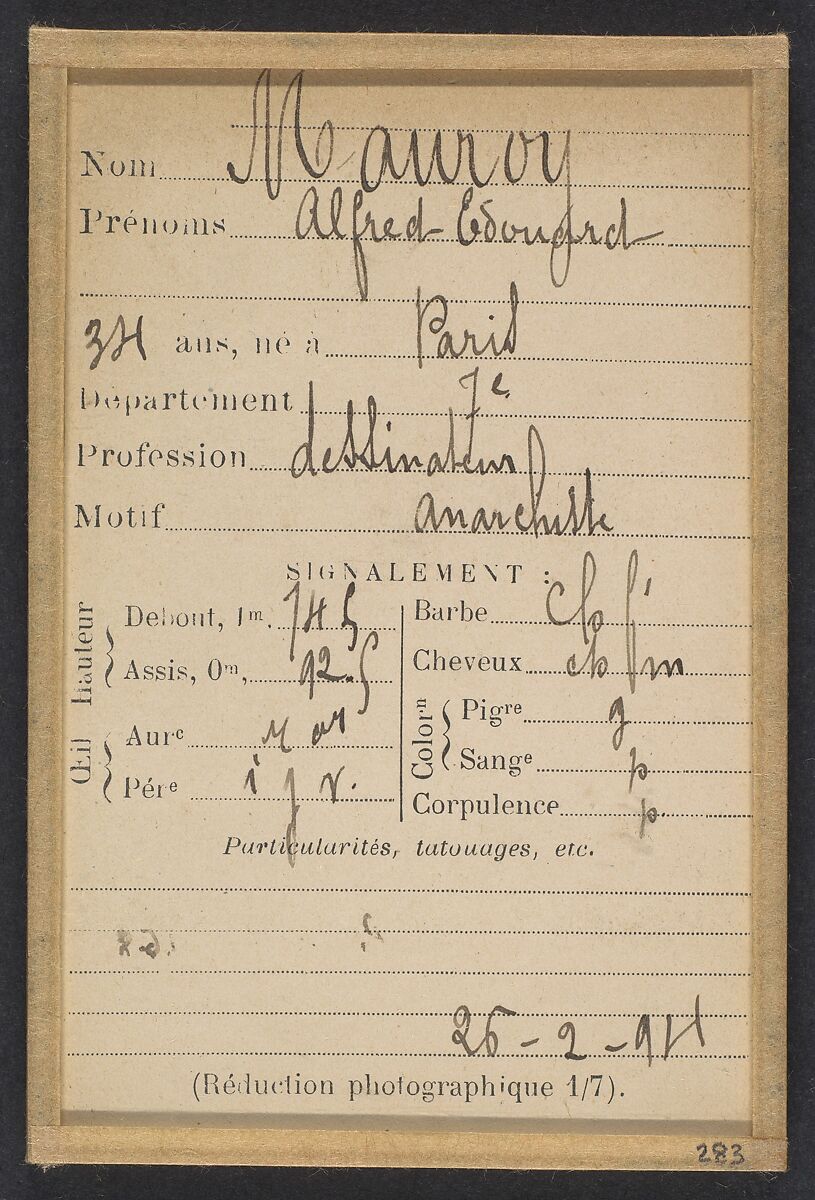 Nom Mauroy
Prénoms Alfred-Edouard
34 ans, né à Paris
Département 7e
Profession dessinateur
Motif anarchiste
SIGNALEMENT :
Hauteur
Debout, 1m, 74 5
Assis, 0m, 92.5
Œil
Aure r or
Pére i j v.
Barbe ch f
Cheveux ch f m
Colorn
Pigre g
Sange p
Corpulence p.
Particularités, tatouages, etc.
26-2-94
(Réduction photographique 1/7).
283